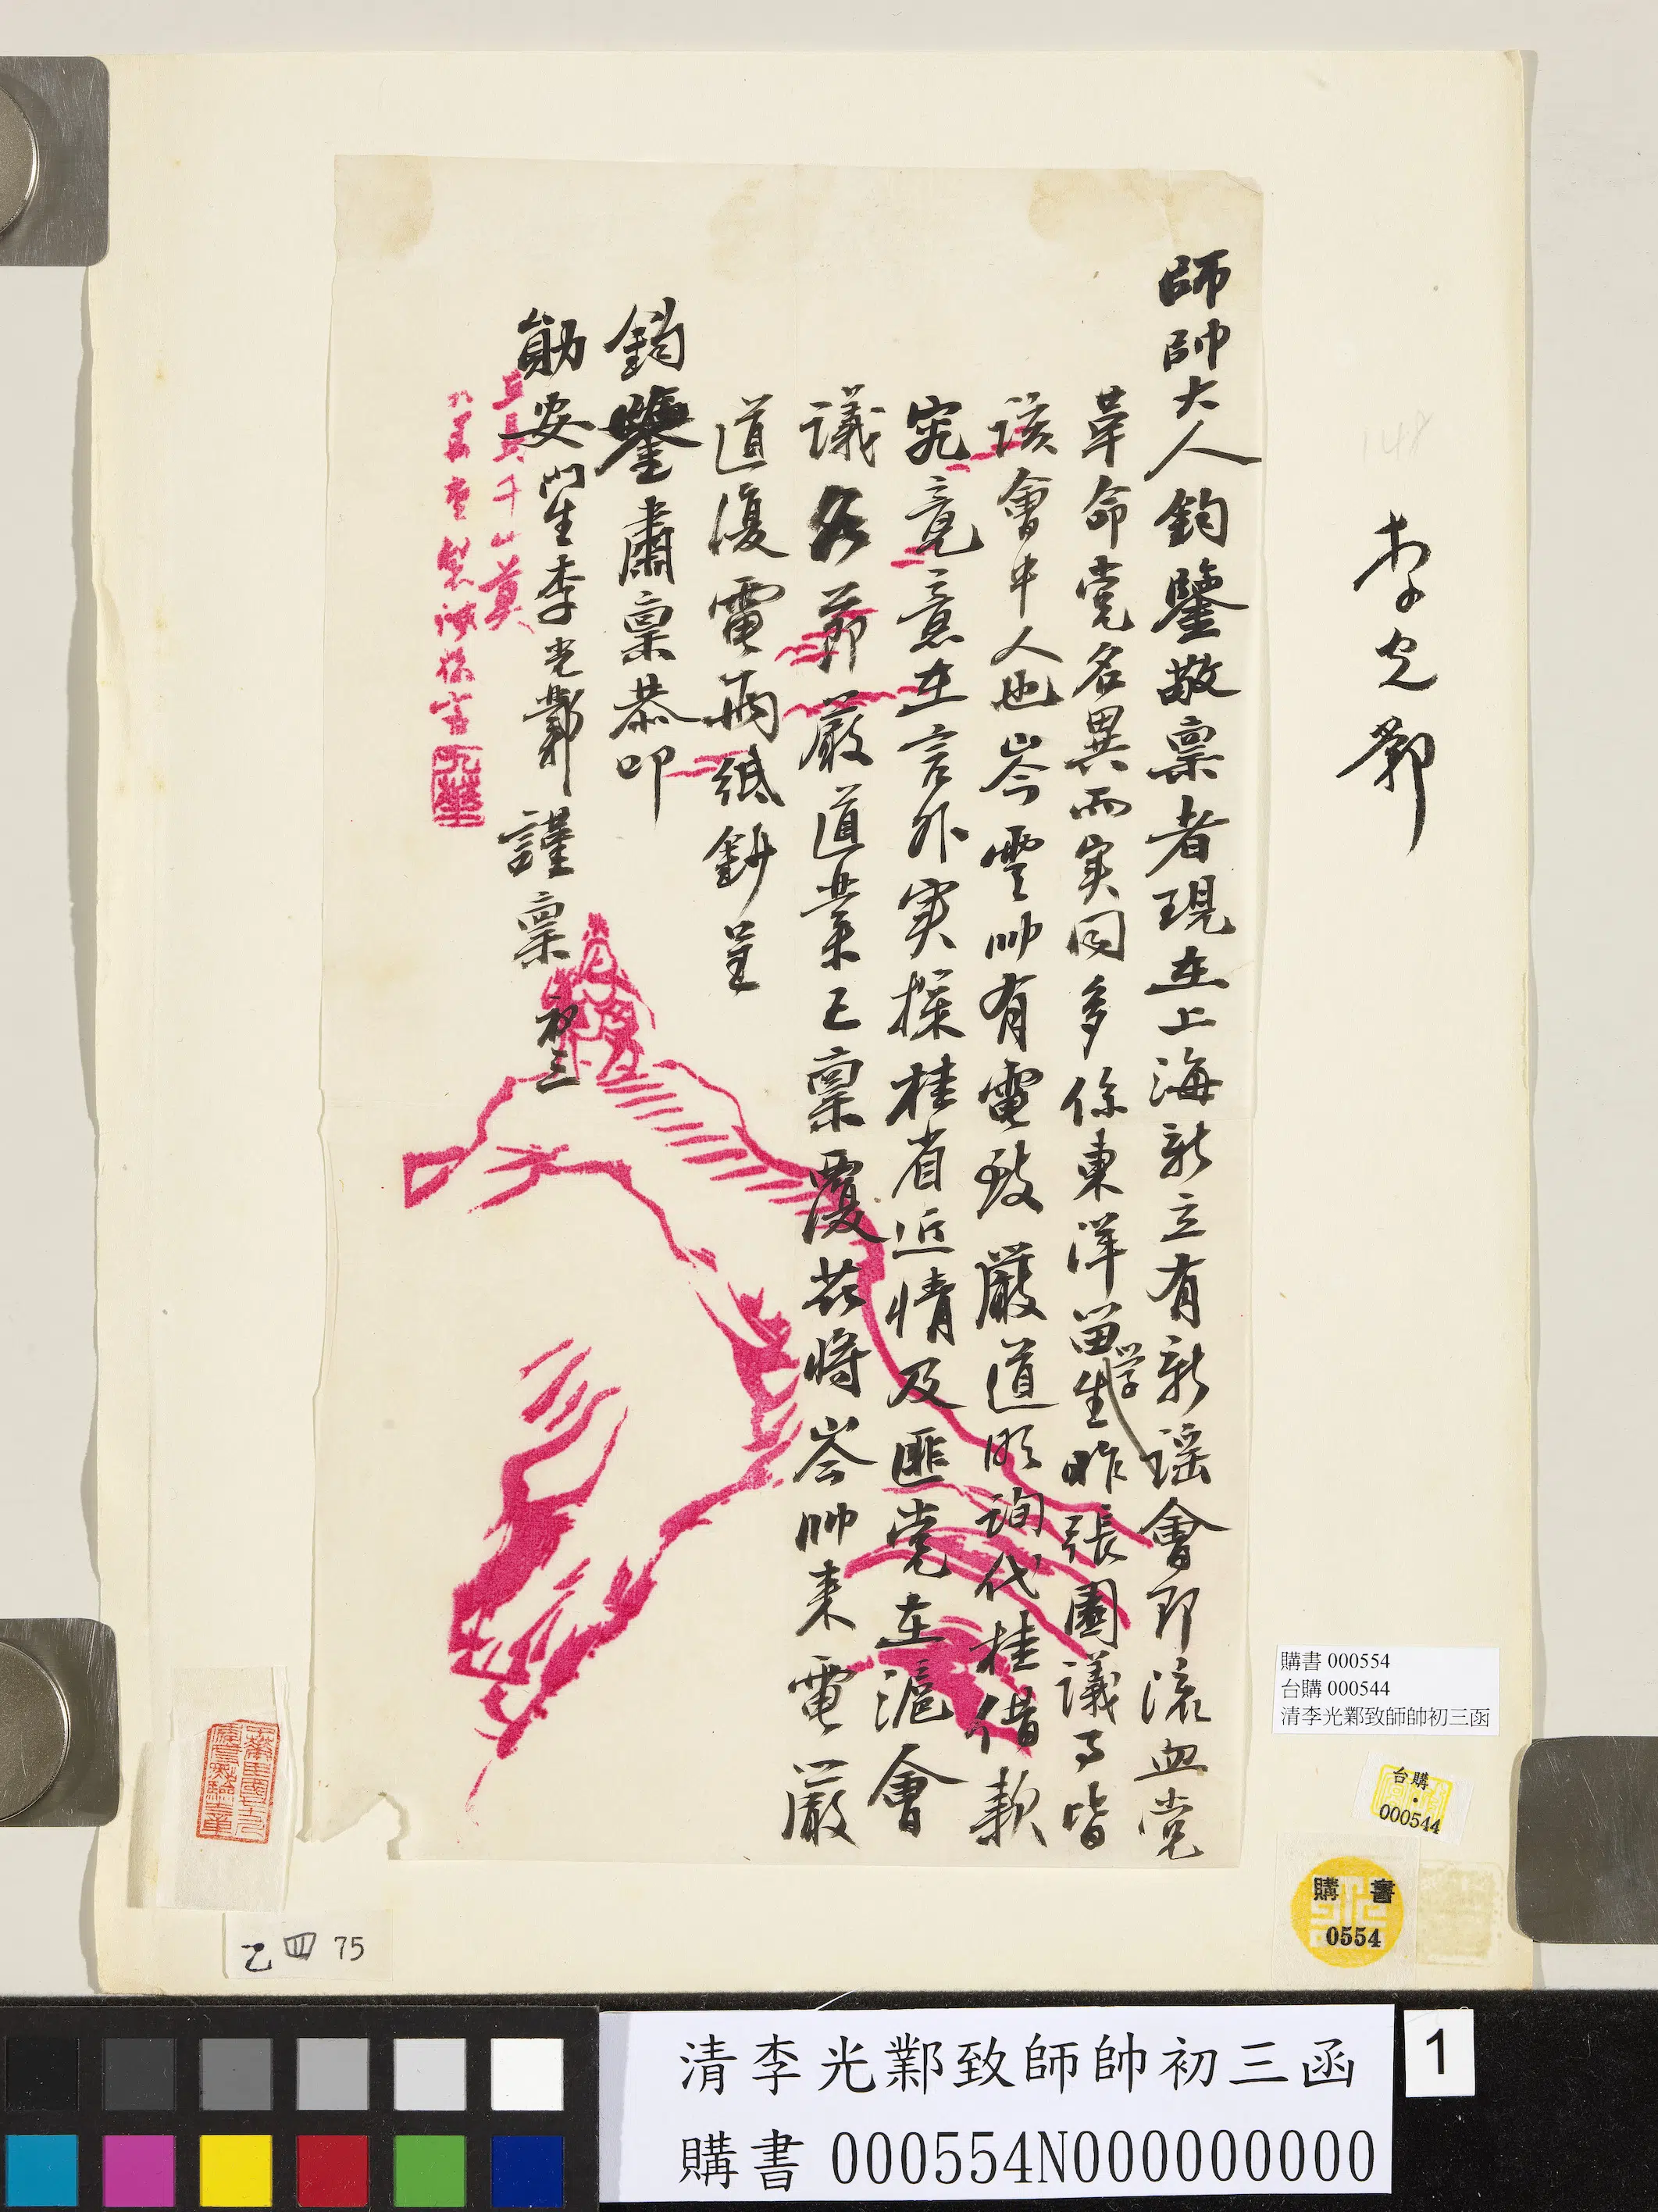 李光鄴
師帥大人鈞鑒敬稟者現在上海新立有新謡會即流血党
革命党名異而实同多係東洋留学生昨張園議事皆
該會中人也岑雲帥有電致嚴道明詢代桂借款
究竟意在言外实探桂省近情及匪党在滬會
議各節嚴道業已稟覆茲將岑帥来電嚴
道復電兩紙鈔呈
鈞鑒肅稟恭叩
勛安門生李光鄴謹稟 初三
購書 000554
台購 000544
清李光鄴致師帥初三函
台購
000544
購書
0554
乙 四 75
清李光鄴致師帥初三函
購書 000554N000000000
1